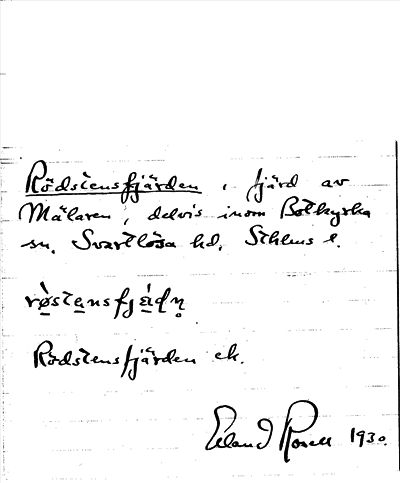 Rödstensfjärden, fjärd av
Mälaren, delvis inom Botkyrka
sn. Svartlösa hd, Sthlms l.
rø̀stensfjá̱dn̥
Rödstensfjärden ek.
Erland Rosell 1930.